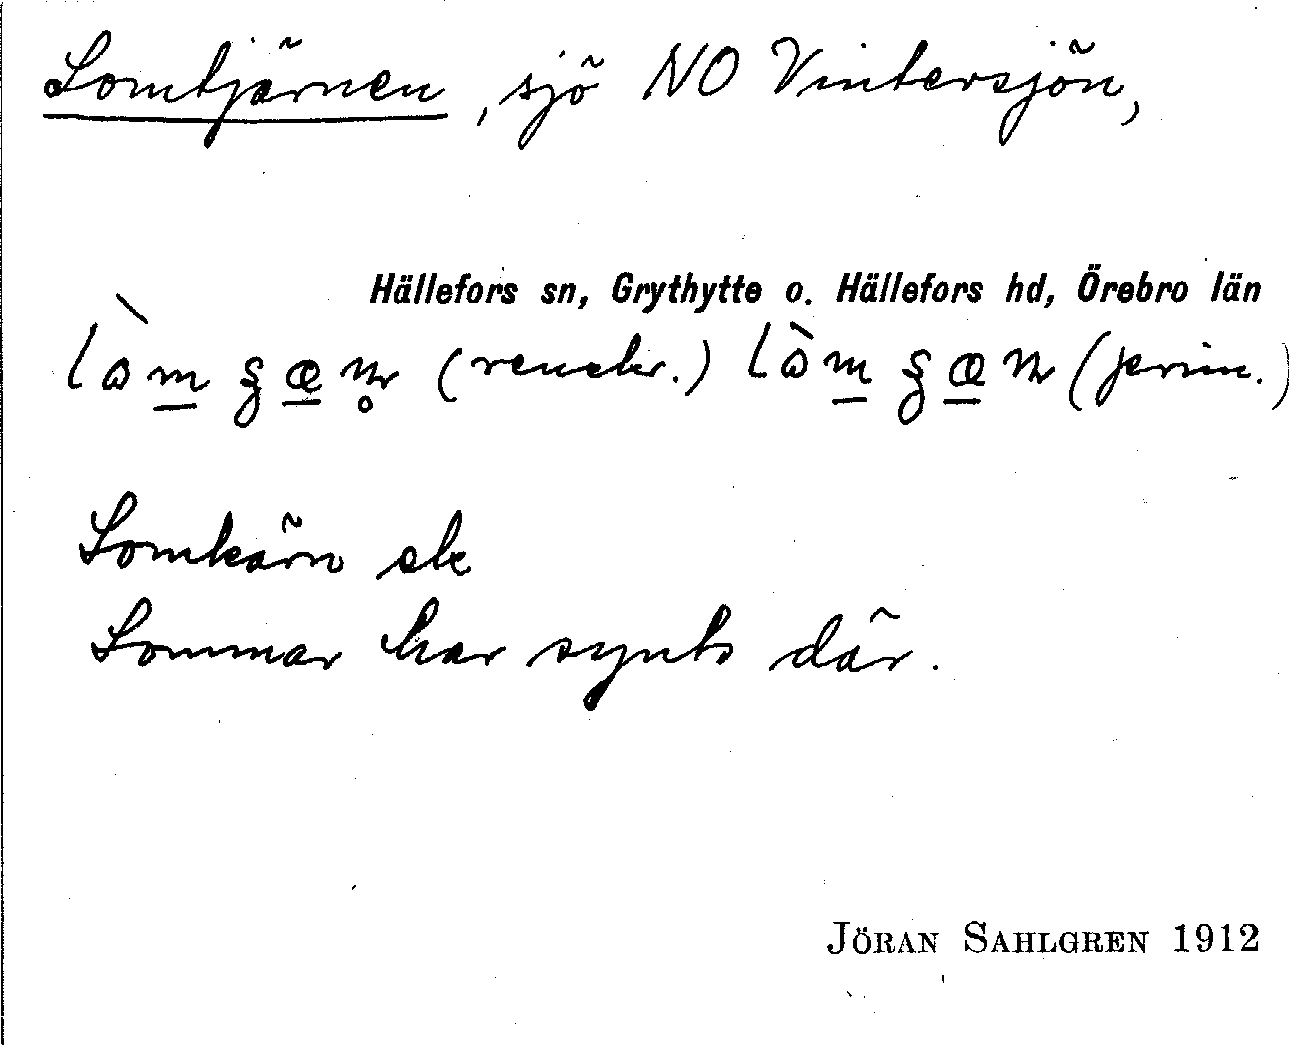 Lomtjärnen, sjö NO Vintersjön,
Hällefors sn, Grythytte o. Hällefors hd, Örebro län
(prim.)
Lomkärn sk
Lommar har synts där.
JÖRAN SAHLGREN 1912